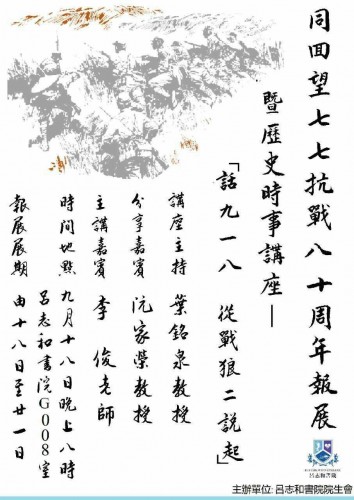 同回望七七抗戰八十周年報展
暨歷史時事講座—
「話九一八 從戰狼二說起」
講座主持 葉銘泉教授
分享嘉賓 沅家榮教授
主講嘉賓 李俊老師
時間地點 九月十八日晚上八時
呂志和書院G008室
報展展期 由十八日至廿一日
呂志和書院
主辦單位: 呂志和書院院生會